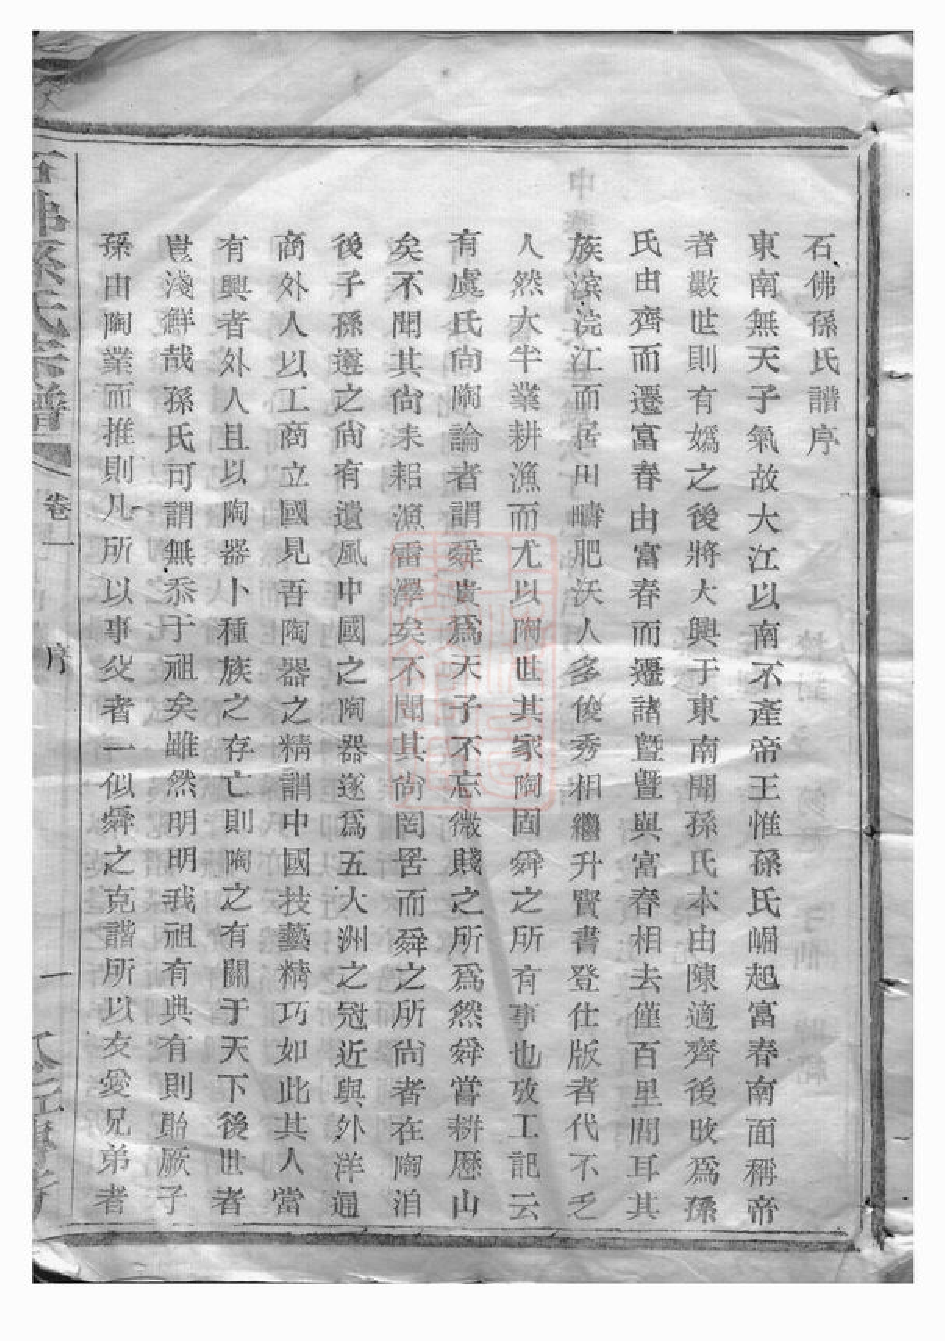 石佛孫氏譜序
東南無天子氣故大江以南不產帝王惟孫氏崛起富春南面稱帝
者數世則有嬀之後將大興于東南聞孫氏本由陳適齊後改爲孫
氏由齊而遷富春由富春而遷諸曁曁與富春相去僅百里間耳其
族濱浣江而居田疇肥沃人多俊秀相繼升賢書登仕版者代不乏
人然大半業耕漁而尤以陶世其家陶固舜之所有事也攷工記云
有虞氏尙陶論者謂舜貴爲天子不忘微賤之所爲然舜當耕歷山
矣不聞其尙耒耜漁雷澤矣不聞其尙罔罟而舜之所尙者在陶洎
後子孫遵之尙有遺風中國之陶器遂爲五大洲之冠近與外洋通
商外人以工商立國見吾陶器之精謂中國技藝精巧如此其人當
有興者外人且以陶器卜種族之存亡則陶之有關于天下後世者
豈淺鮮哉孫氏可謂無忝于祖矣雖然明明我祖有典有則貽厥子
孫由陶業而推則凡所以事父者一似舜之克諧所以友愛兄弟者
石佛孫氏宗譜
卷一
序
一